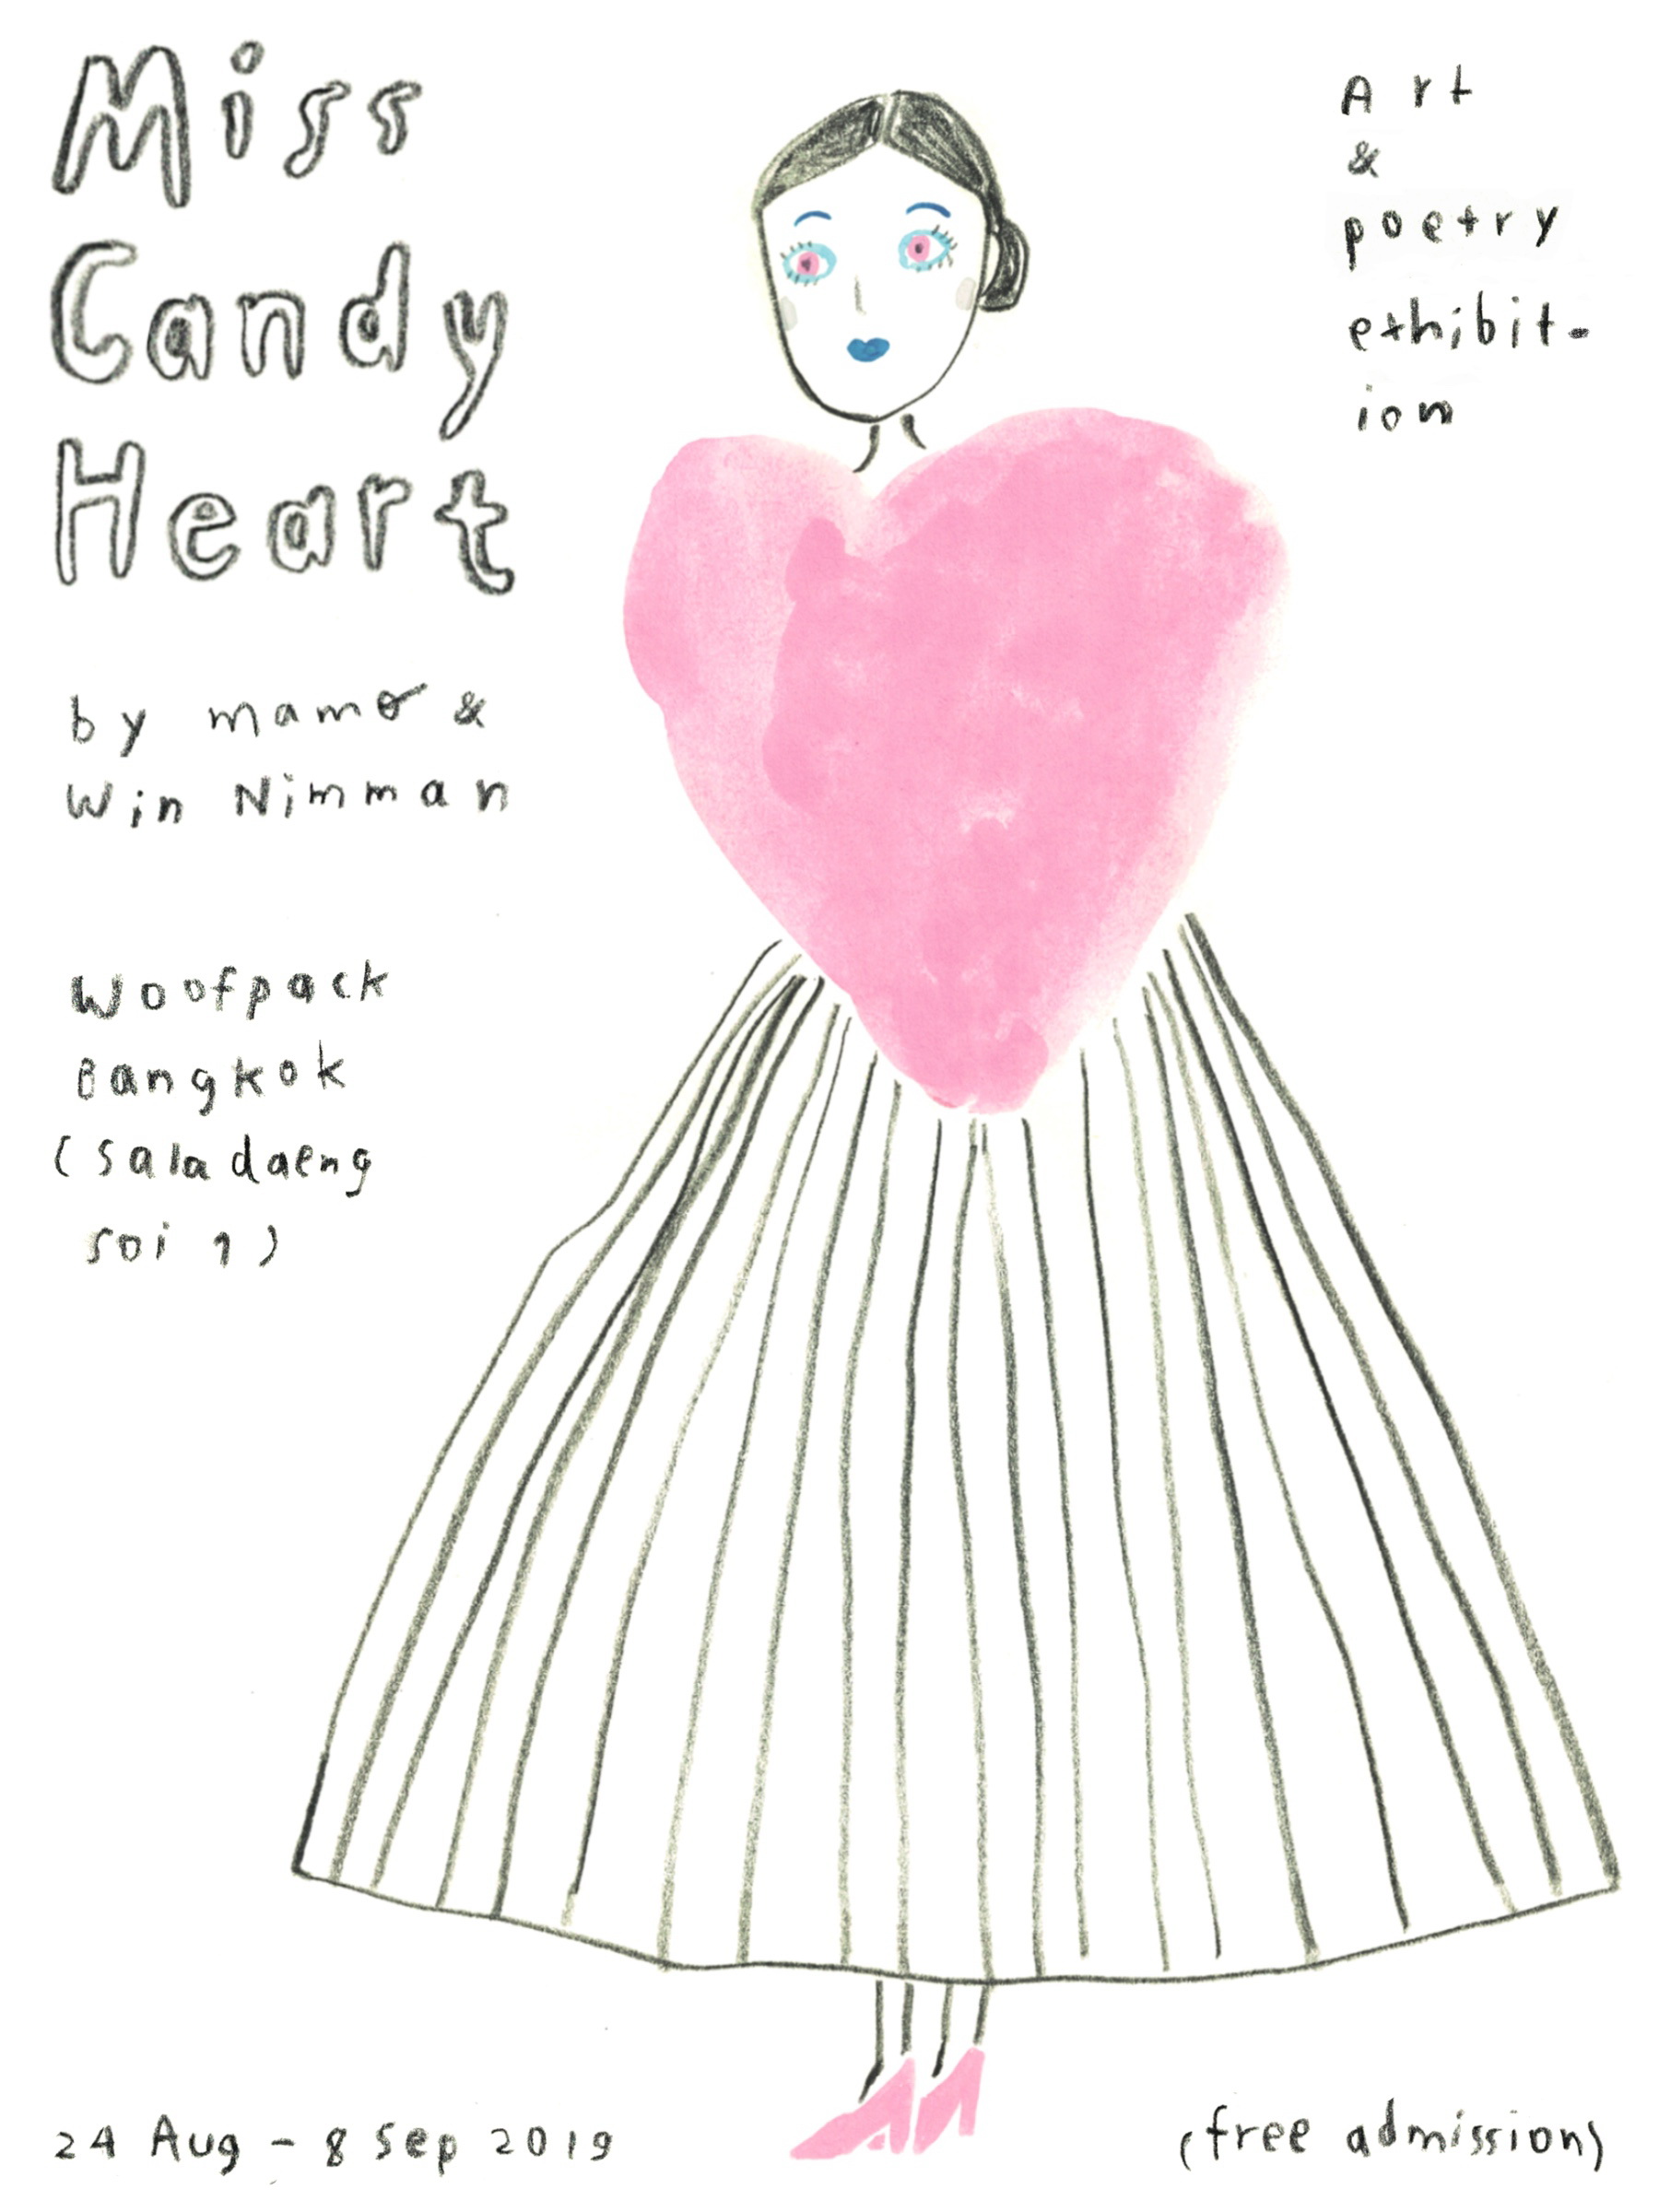 Miss
Candy
Heart
by mamo &
Win Nimman
Woofpack
Bangkok
(saladaeng
soi 1)
Art
&
poetry
exhibit-
ion
24 Aug - 8 Sep 2019
(free admission)